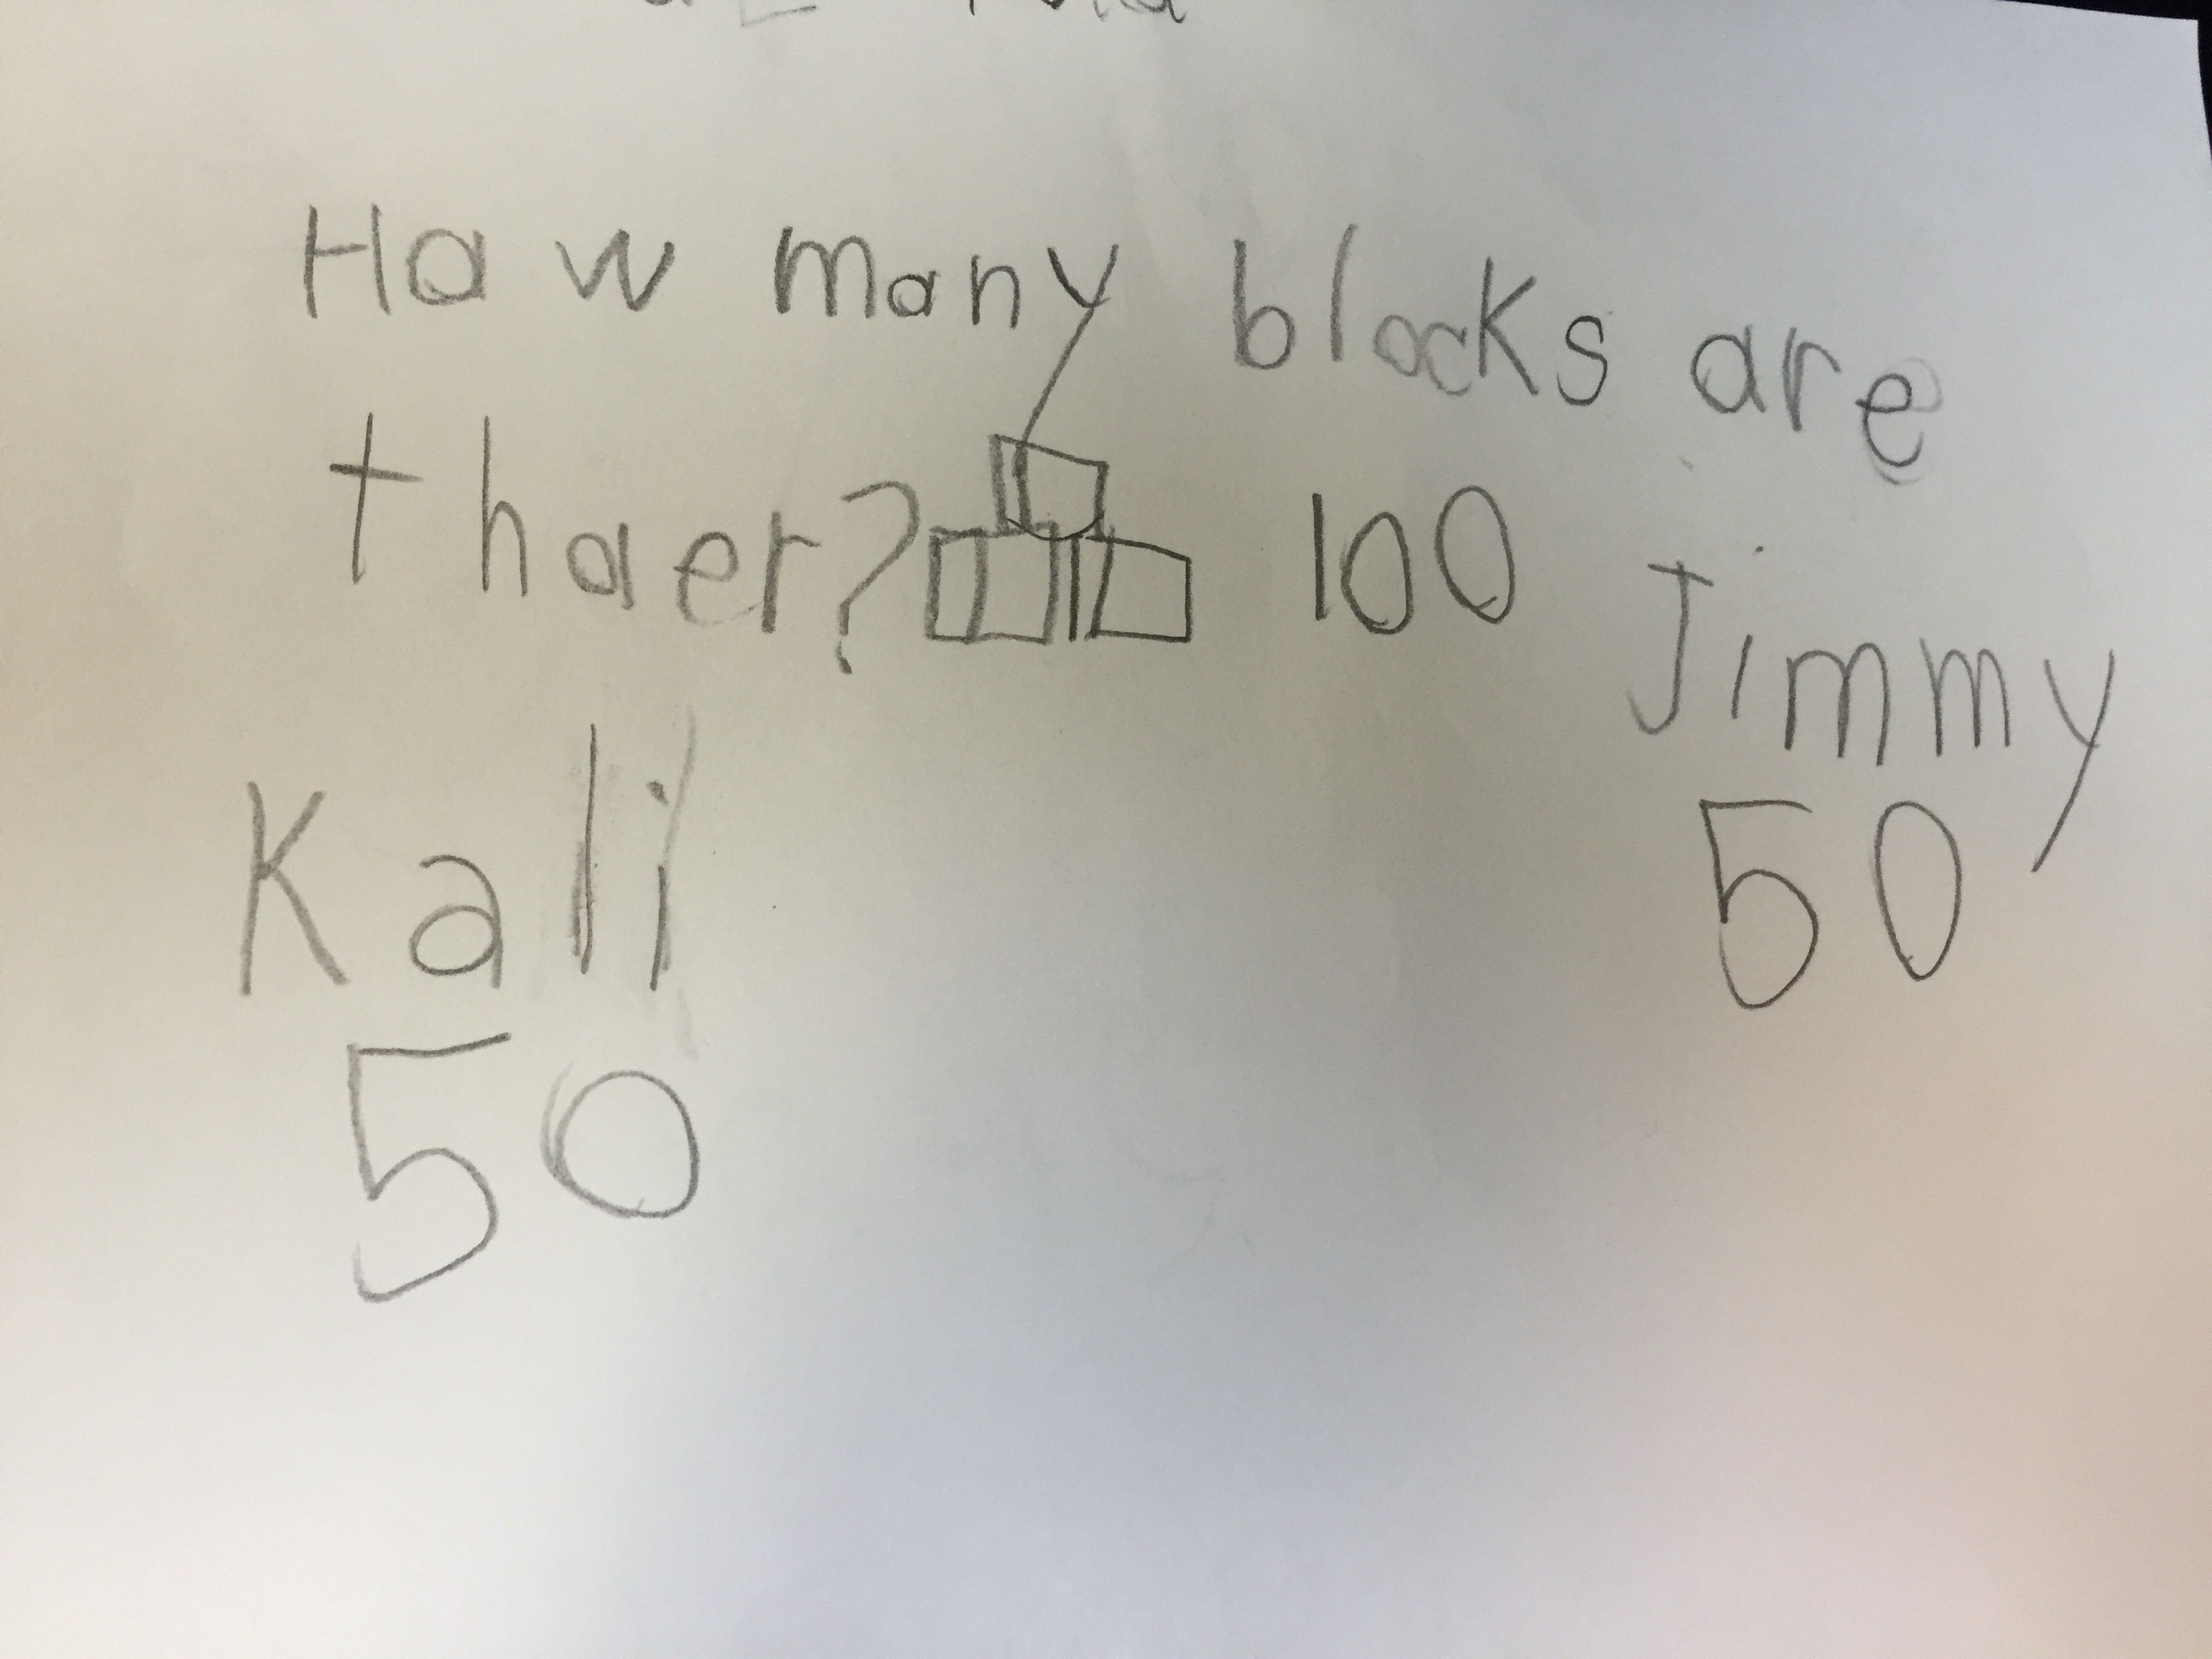 Haw many blocks are
thaer? 100
Jimmy
50
Kali
50